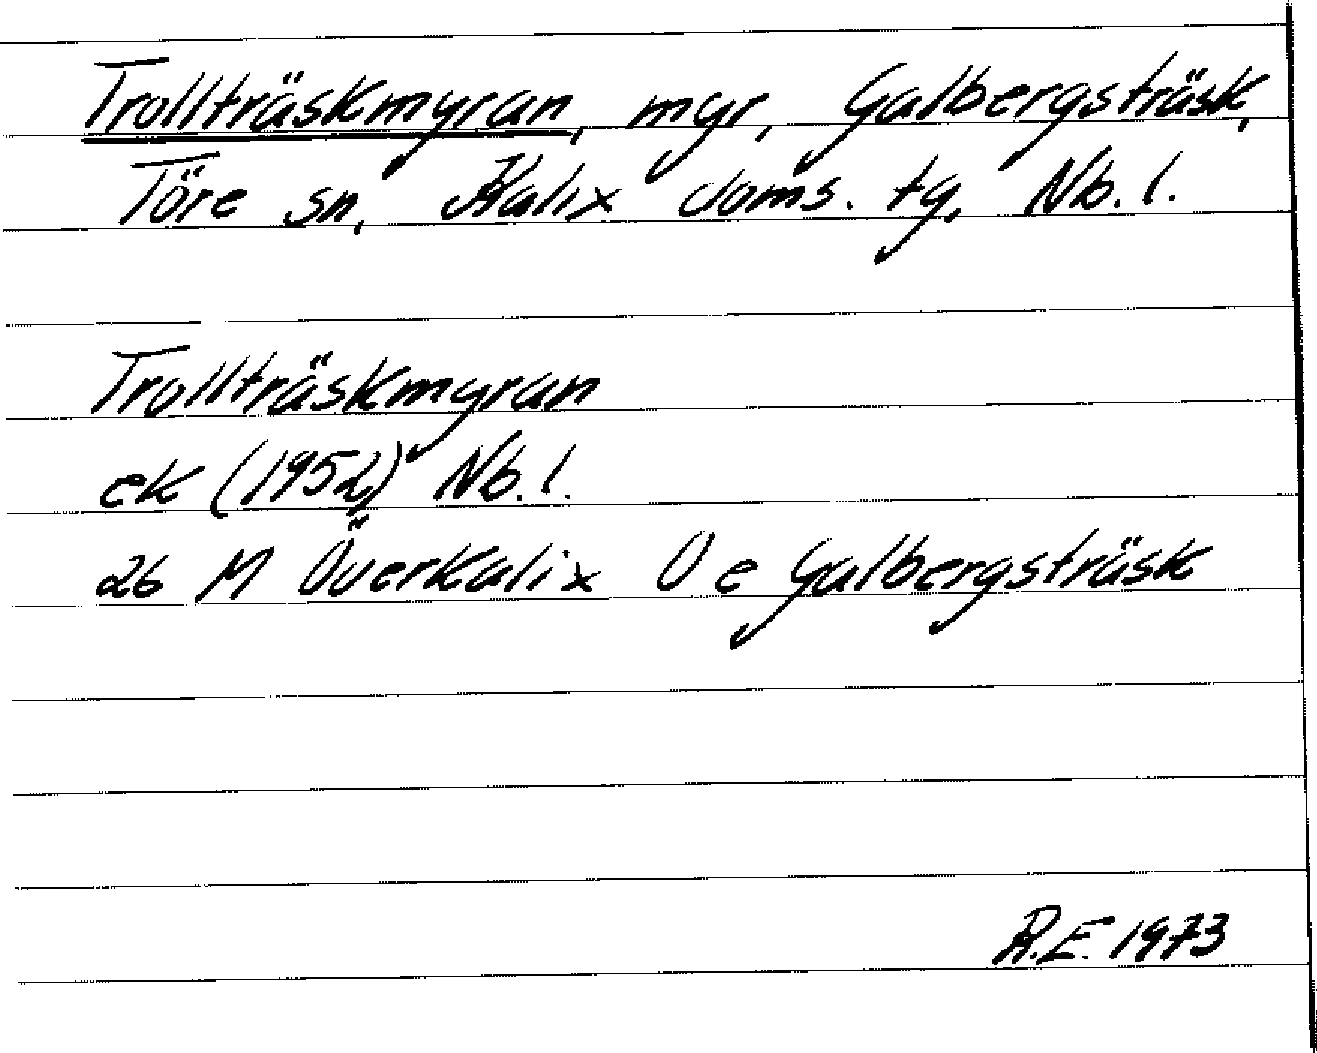 Trollträskmyran, myr, Galbergsträsk,
Töre sn, Kalix doms. tg, Nb. l.
Trollträskmyran
ek (1952) Nb. l.
26 M Överkalix O e Galbergsträsk
R.E. 1973